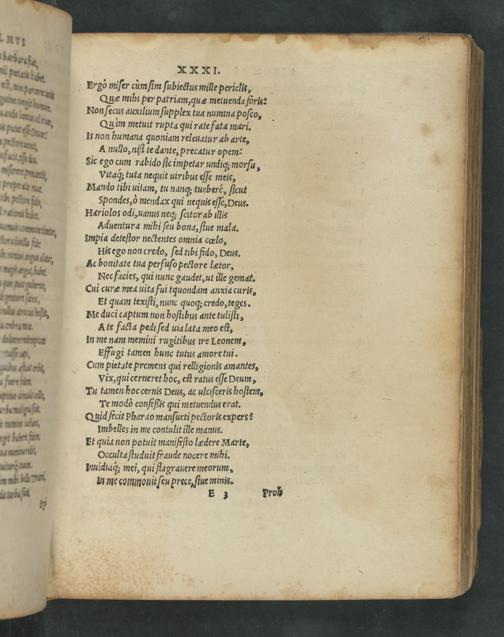 XXXI.
Ergò miser cum sim subiectus mille periclis,
Quæ mihi per patriam, quæ metuenda foris:
Non secus auxilium supplex tua numina posco,
Quàm metuit rupta qui rate fata mari.
Is non humana quoniam releuatur ab arte,
A nullo, nisi te dante, precatur opem:
Sic ego cum rabido sic impetar undiq; morsu,
Vitaq; tuta nequit uiribus esse meis,
Mando tibi uitam, tu nanq; tueberè, sicut
Spondes, ô mendax qui nequis esse, Deus.
Hariolos odi, uanus neq; scitor ab illis
Aduentura mihi seu bona, siue mala.
Impia detestor nectentes omnia cœlo,
His ego non credo, sed tibi fido, Deus.
Ac bonitate tua perfuso pectore lætor,
Nec facies, qui nunc gaudet, ut ille gemat.
Cui curæ mea uita fuit quondam anxia curis,
Et quam texisti, nunc quoq; credo, teges.
Me duci captum non hostibus ante tulisti,
A te facta pedi sed uia lata meo est,
In me nam memini rugitibus ire Leonem,
Effugi tamen hunc tutus amore tui.
Cum pietate premens qui relligionis amantes,
Vix, qui cerneret hoc, est ratus esse Deum,
Tu tamen hoc cernis Deus, ac ulcisceris hostem,
Te modò confissis qui metuendus erat.
Quid fecit Pharao mansueti pectoris expers?
Imbelles in me contulit ille manus.
Et quia non potuit manifesto lædere Marte,
Occulta studuit fraude nocere mihi.
Inuidiaq; mei, qui flagrauere meorum,
In me commouit seu prece, siue minis.
E 3 Prob